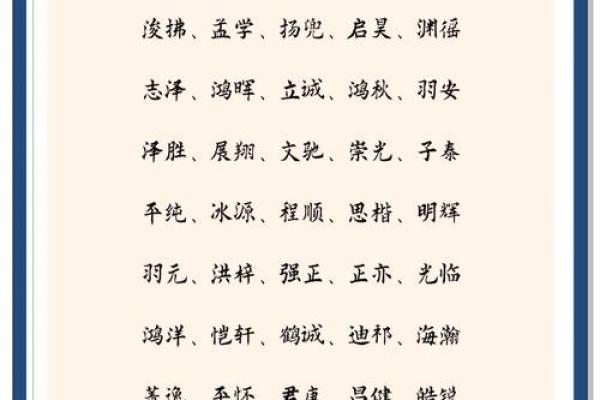 浚拂、孟学、扬兜、启昊、渊徭
志泽、鸿晖、立诚、鸿秋、羽安
泽胜、展翔、文驰、崇光、子泰
平纯、冰源、程顺、思楷、明辉
羽元、洪梓、强正、正亦、光临
鸿洋、恺轩、鹤诚、迪祁、海瀚
逸、平怀、君康、昌健、皓锐